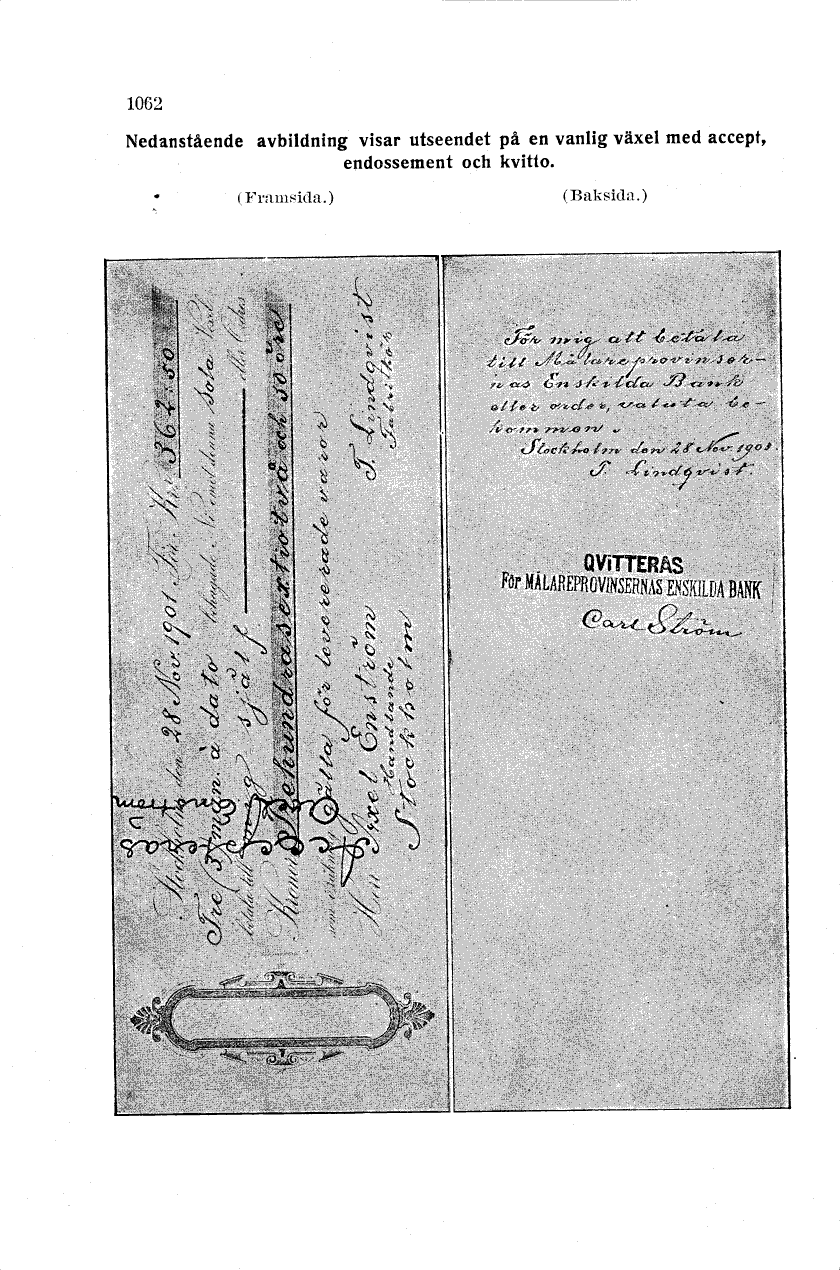 1062
Nedanstående avbildning visar utseendet på en vanlig växel med accept,
endossement och kvitto.
(Framsida.)
(Baksida.)
Stockholm den 28 Nov 1901. För Kr. 362:50
Tre (3) mån. à dato behagade Ni emot denna Sola Växel
betala till mig själf eller Ordres
Kronor Trehundrasextiotvå och 50 öre
för levererade varor
Herr Axel Enström T. Lindqvist
Handlande Fabrikör
Stockholm
Accepteras
Axel Enström
För mig att betala
till Mälareprovinser-
nas Enskilda Bank
eller order, valuta be-
kommen.
Stockholm den 28 Nov. 1901.
T. Lindqvist.
QVITTERAS
För MÄLAREPROVINSERNAS ENSKILDA BANK
Carl Ström